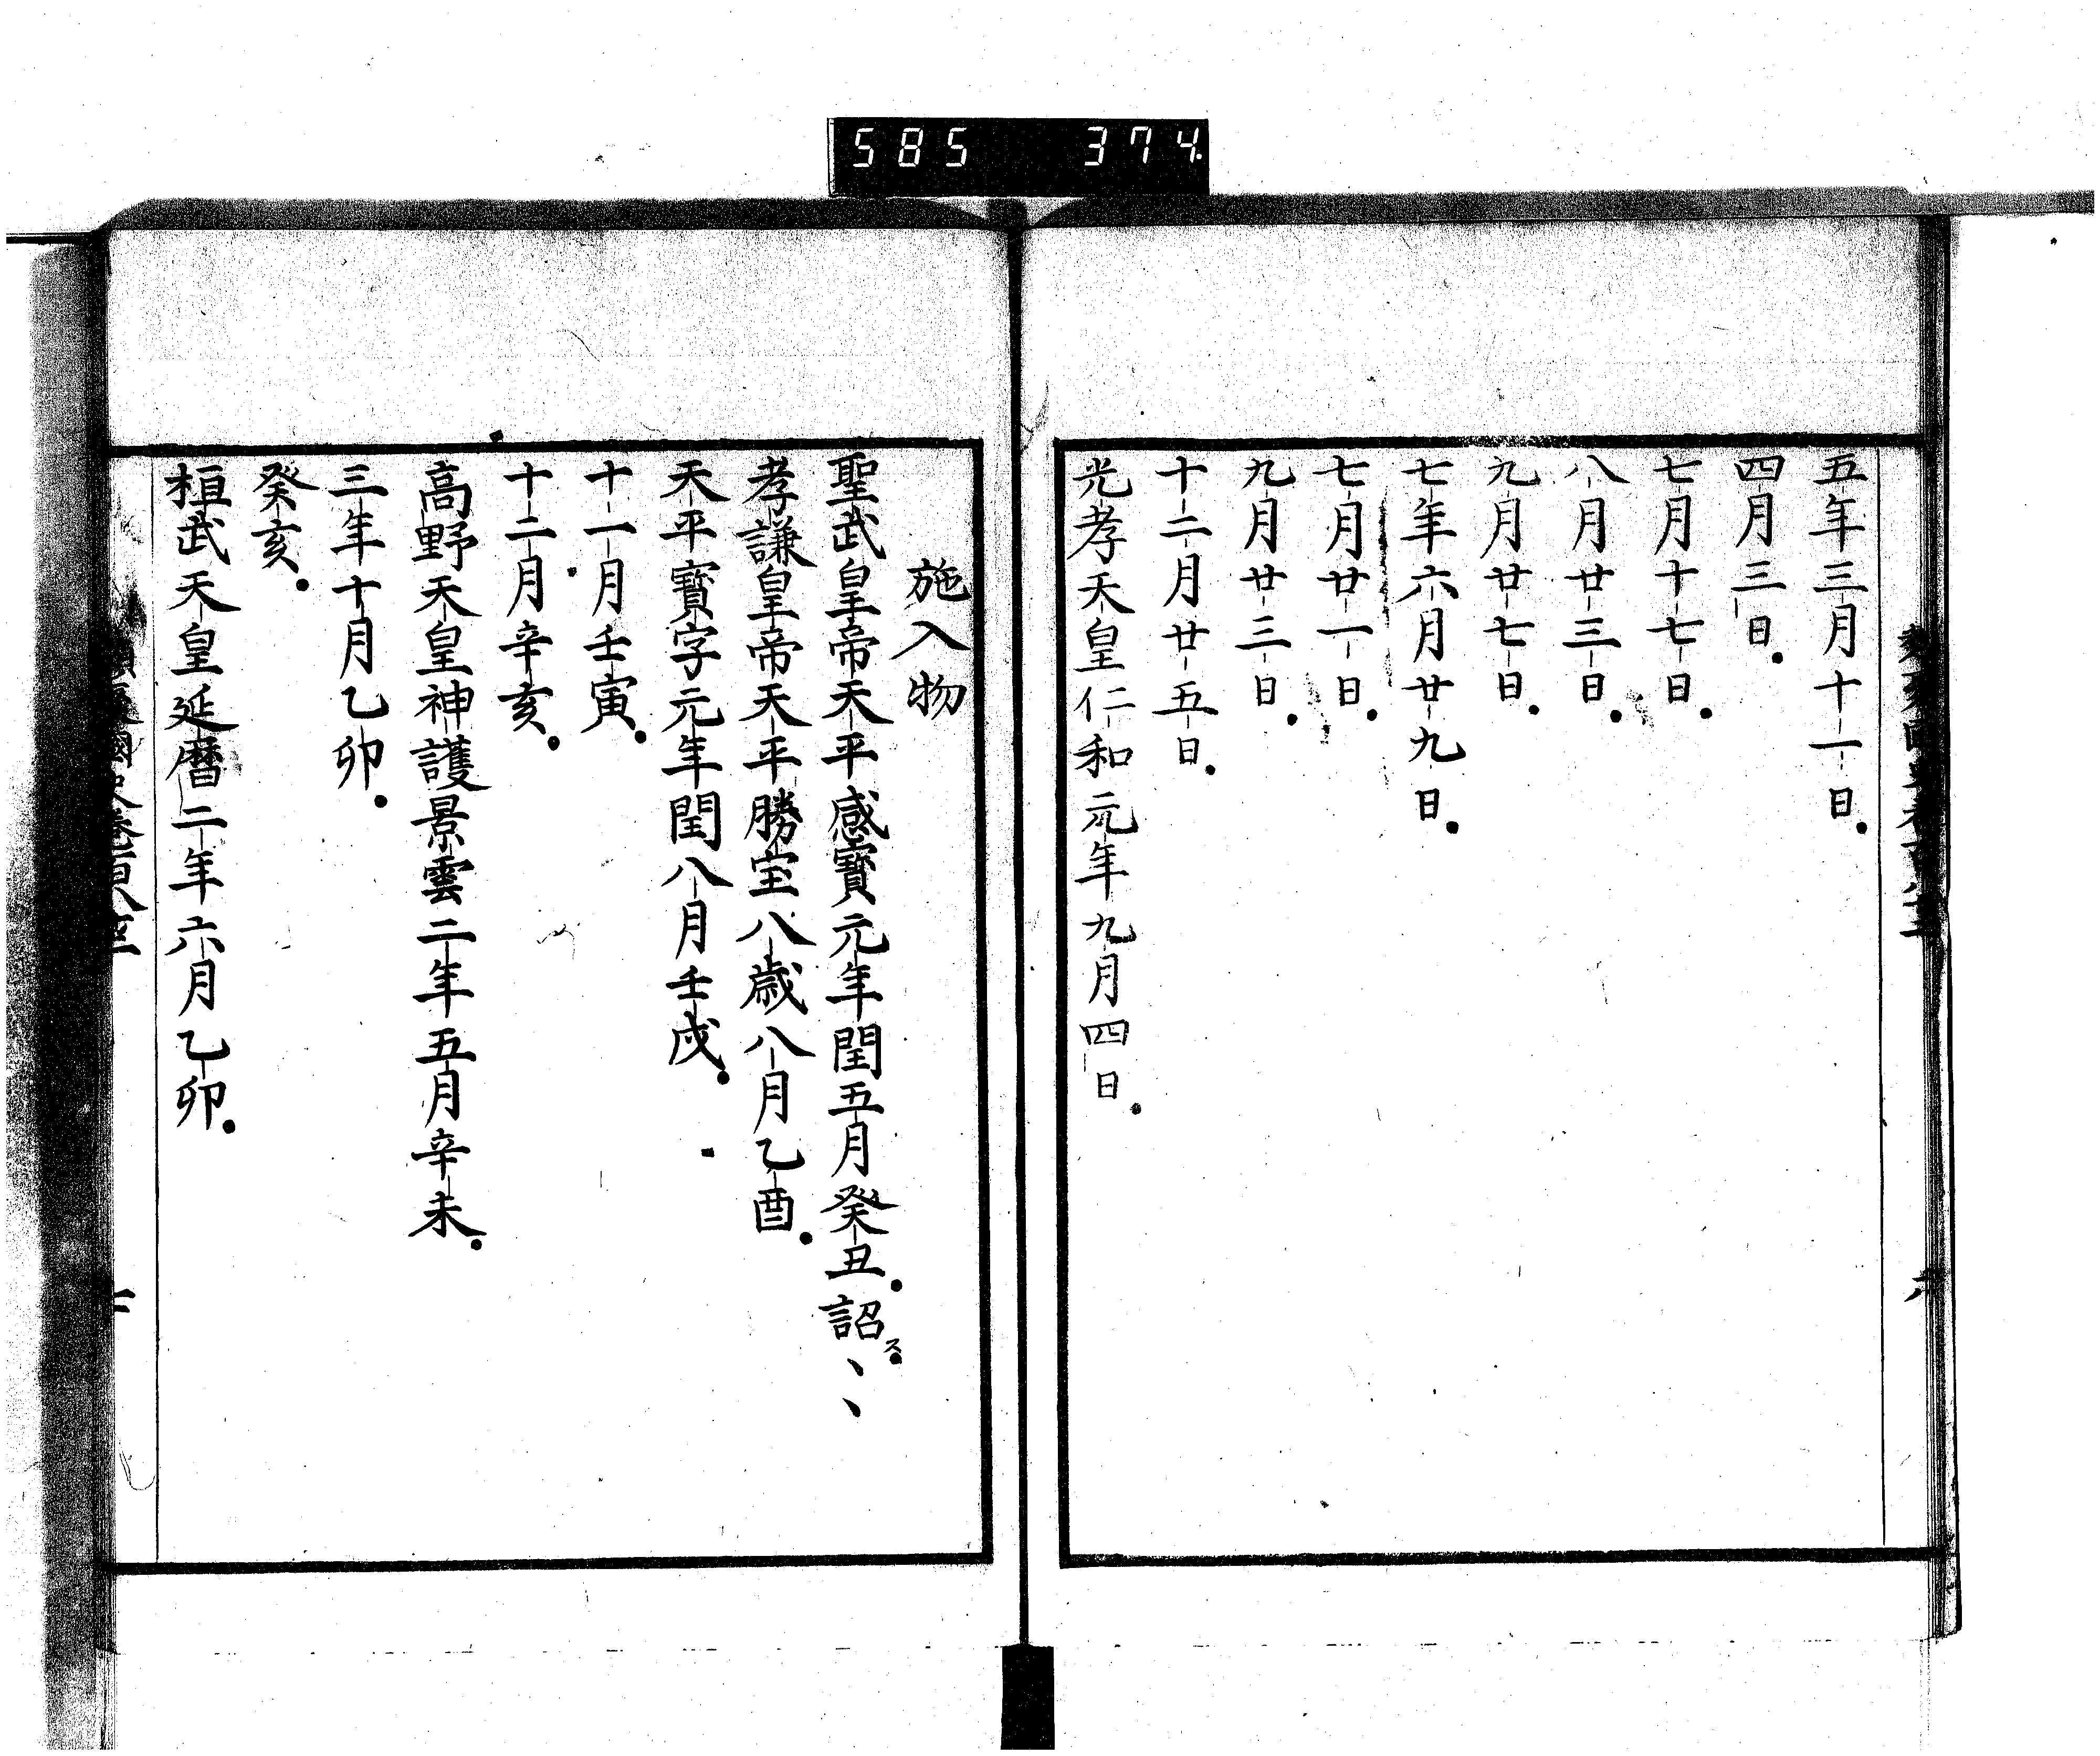 585 374
五年三月十一日
四月三日
七月十七日
八月廿三日
九月廿七日
七年六月廿九日
七月廿一日
九月廿三日
十二月廿五日
光孝天皇仁和元年九月四日
施入物
聖武皇帝天平感寶元年閏五月癸丑詔ヽヽ
孝謙皇帝天平勝宝八歲八月乙酉
天平寶字元年閏八月壬戌
十一月壬寅
十二月辛亥
高野天皇神護景雲二年五月辛未
三年十月乙卯
癸亥
桓武天皇延曆二年六月乙卯